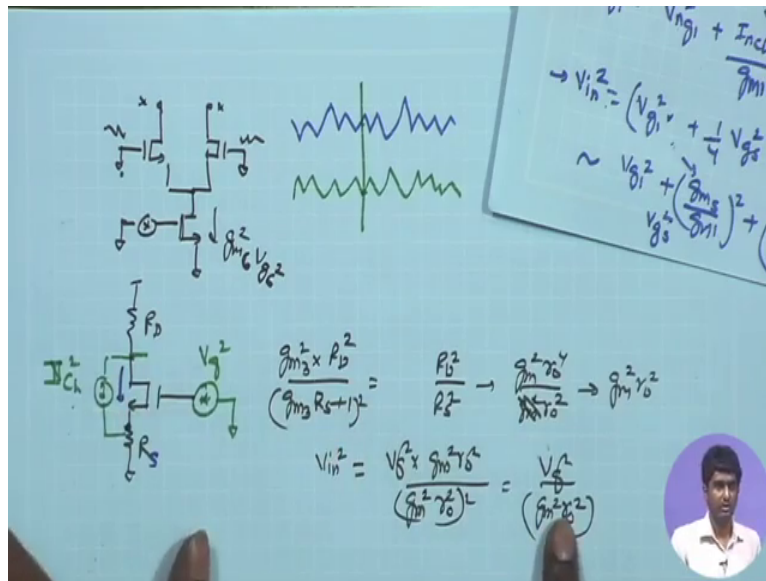 V_ng1^2 + I_nch
g_m1
→ V_in^2 = (V_g1^2 + 1/4 V_g5^2
~ V_g1^2 + (g_m5/g_m1)^2 + (
V_g5^2
x x
g_m6^2 V_g6^2
R_D
I_Ch^2
V_g^2
R_S
g_m3^2 × R_D^2 / (g_m3 R_S + 1)^2 = R_D^2 / R_S^2 → g_m^2 r_o^4 / r_o^2 → g_m^2 r_o^2
V_in^2 = V_g^2 × g_m^2 r_o^2 / (g_m^2 r_o^2)^2 = V_g^2 / (g_m^2 r_o^2)